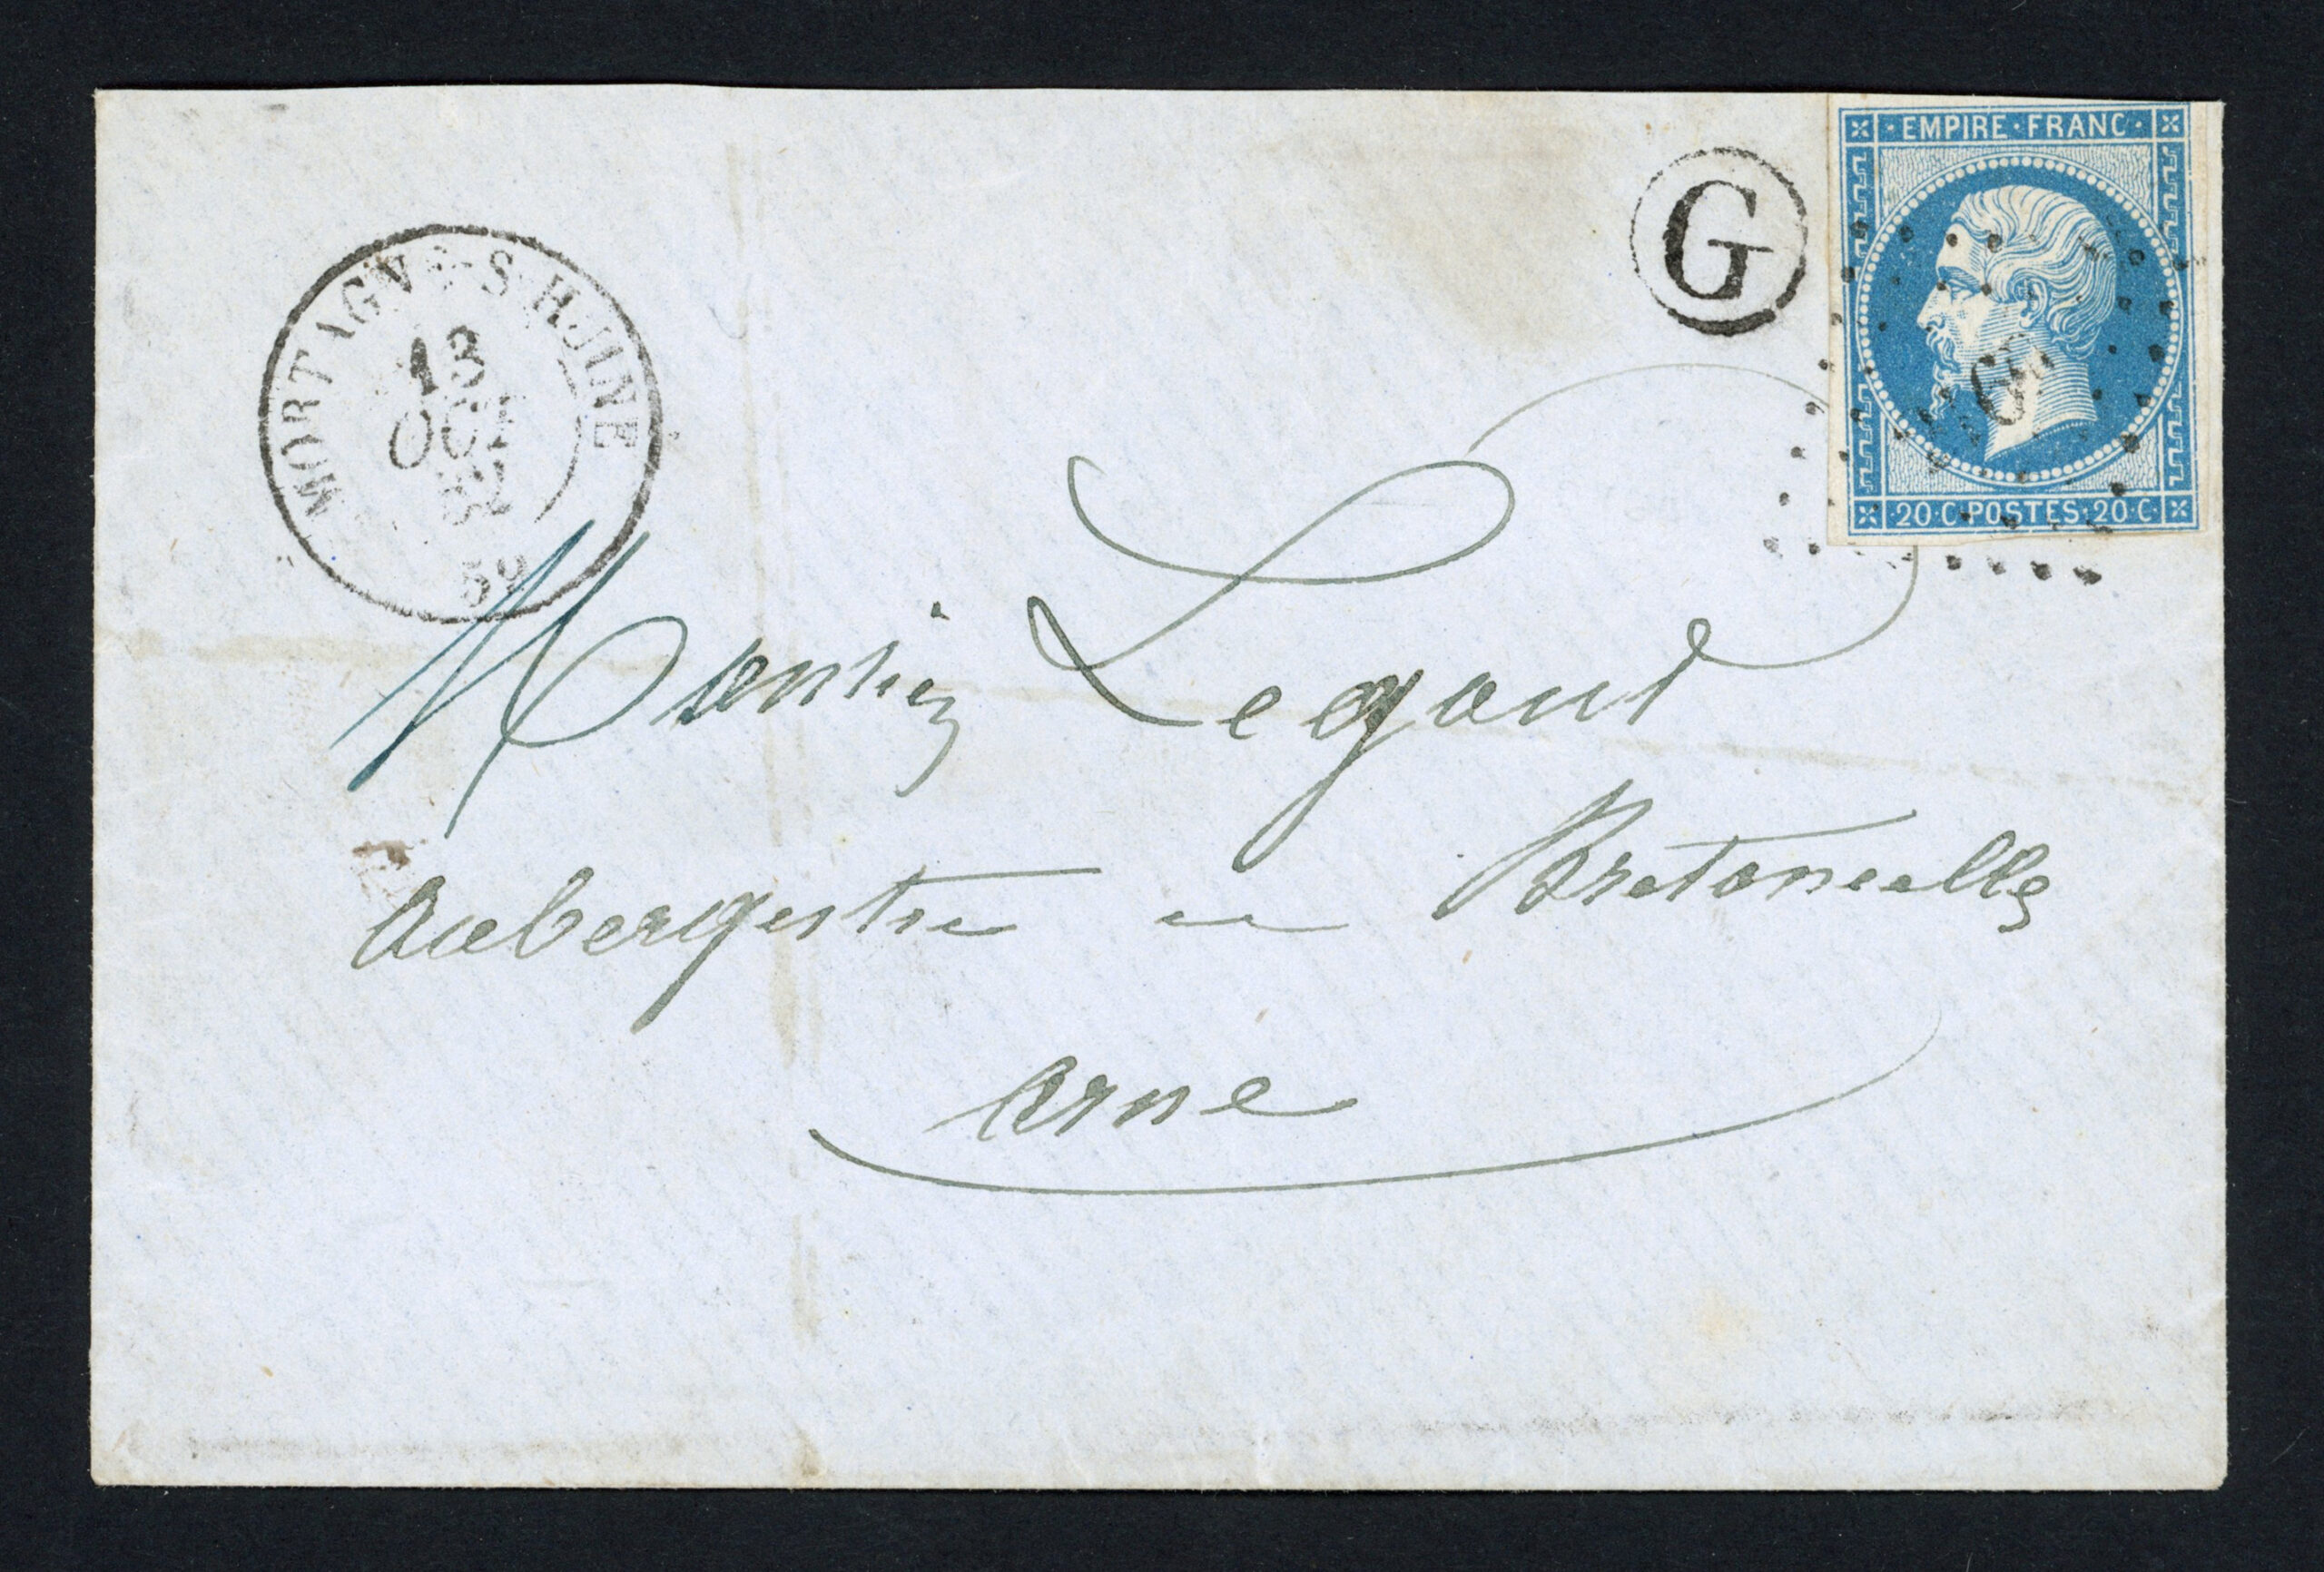 EMPIRE · FRANC ·
G
MORTAGNE-S-HUINE
13
OCT
52
20·C·POSTES·20·C·
Monsieur Legoout
Aubergiste a Bretoncelles
orne